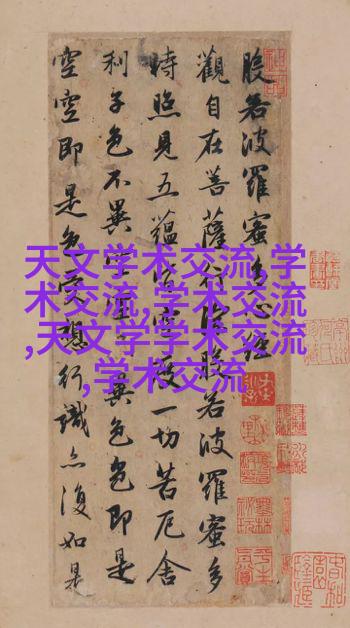 般若波羅蜜多心經
觀自在菩薩行深般若波羅蜜多
時照見五蘊皆空度一切苦厄舍
利子色不異空空不異色色即是
空空即是色受想行識亦復如是
天文学术交流,学
术交流,学术交流
,天文学学术交流
,学术交流